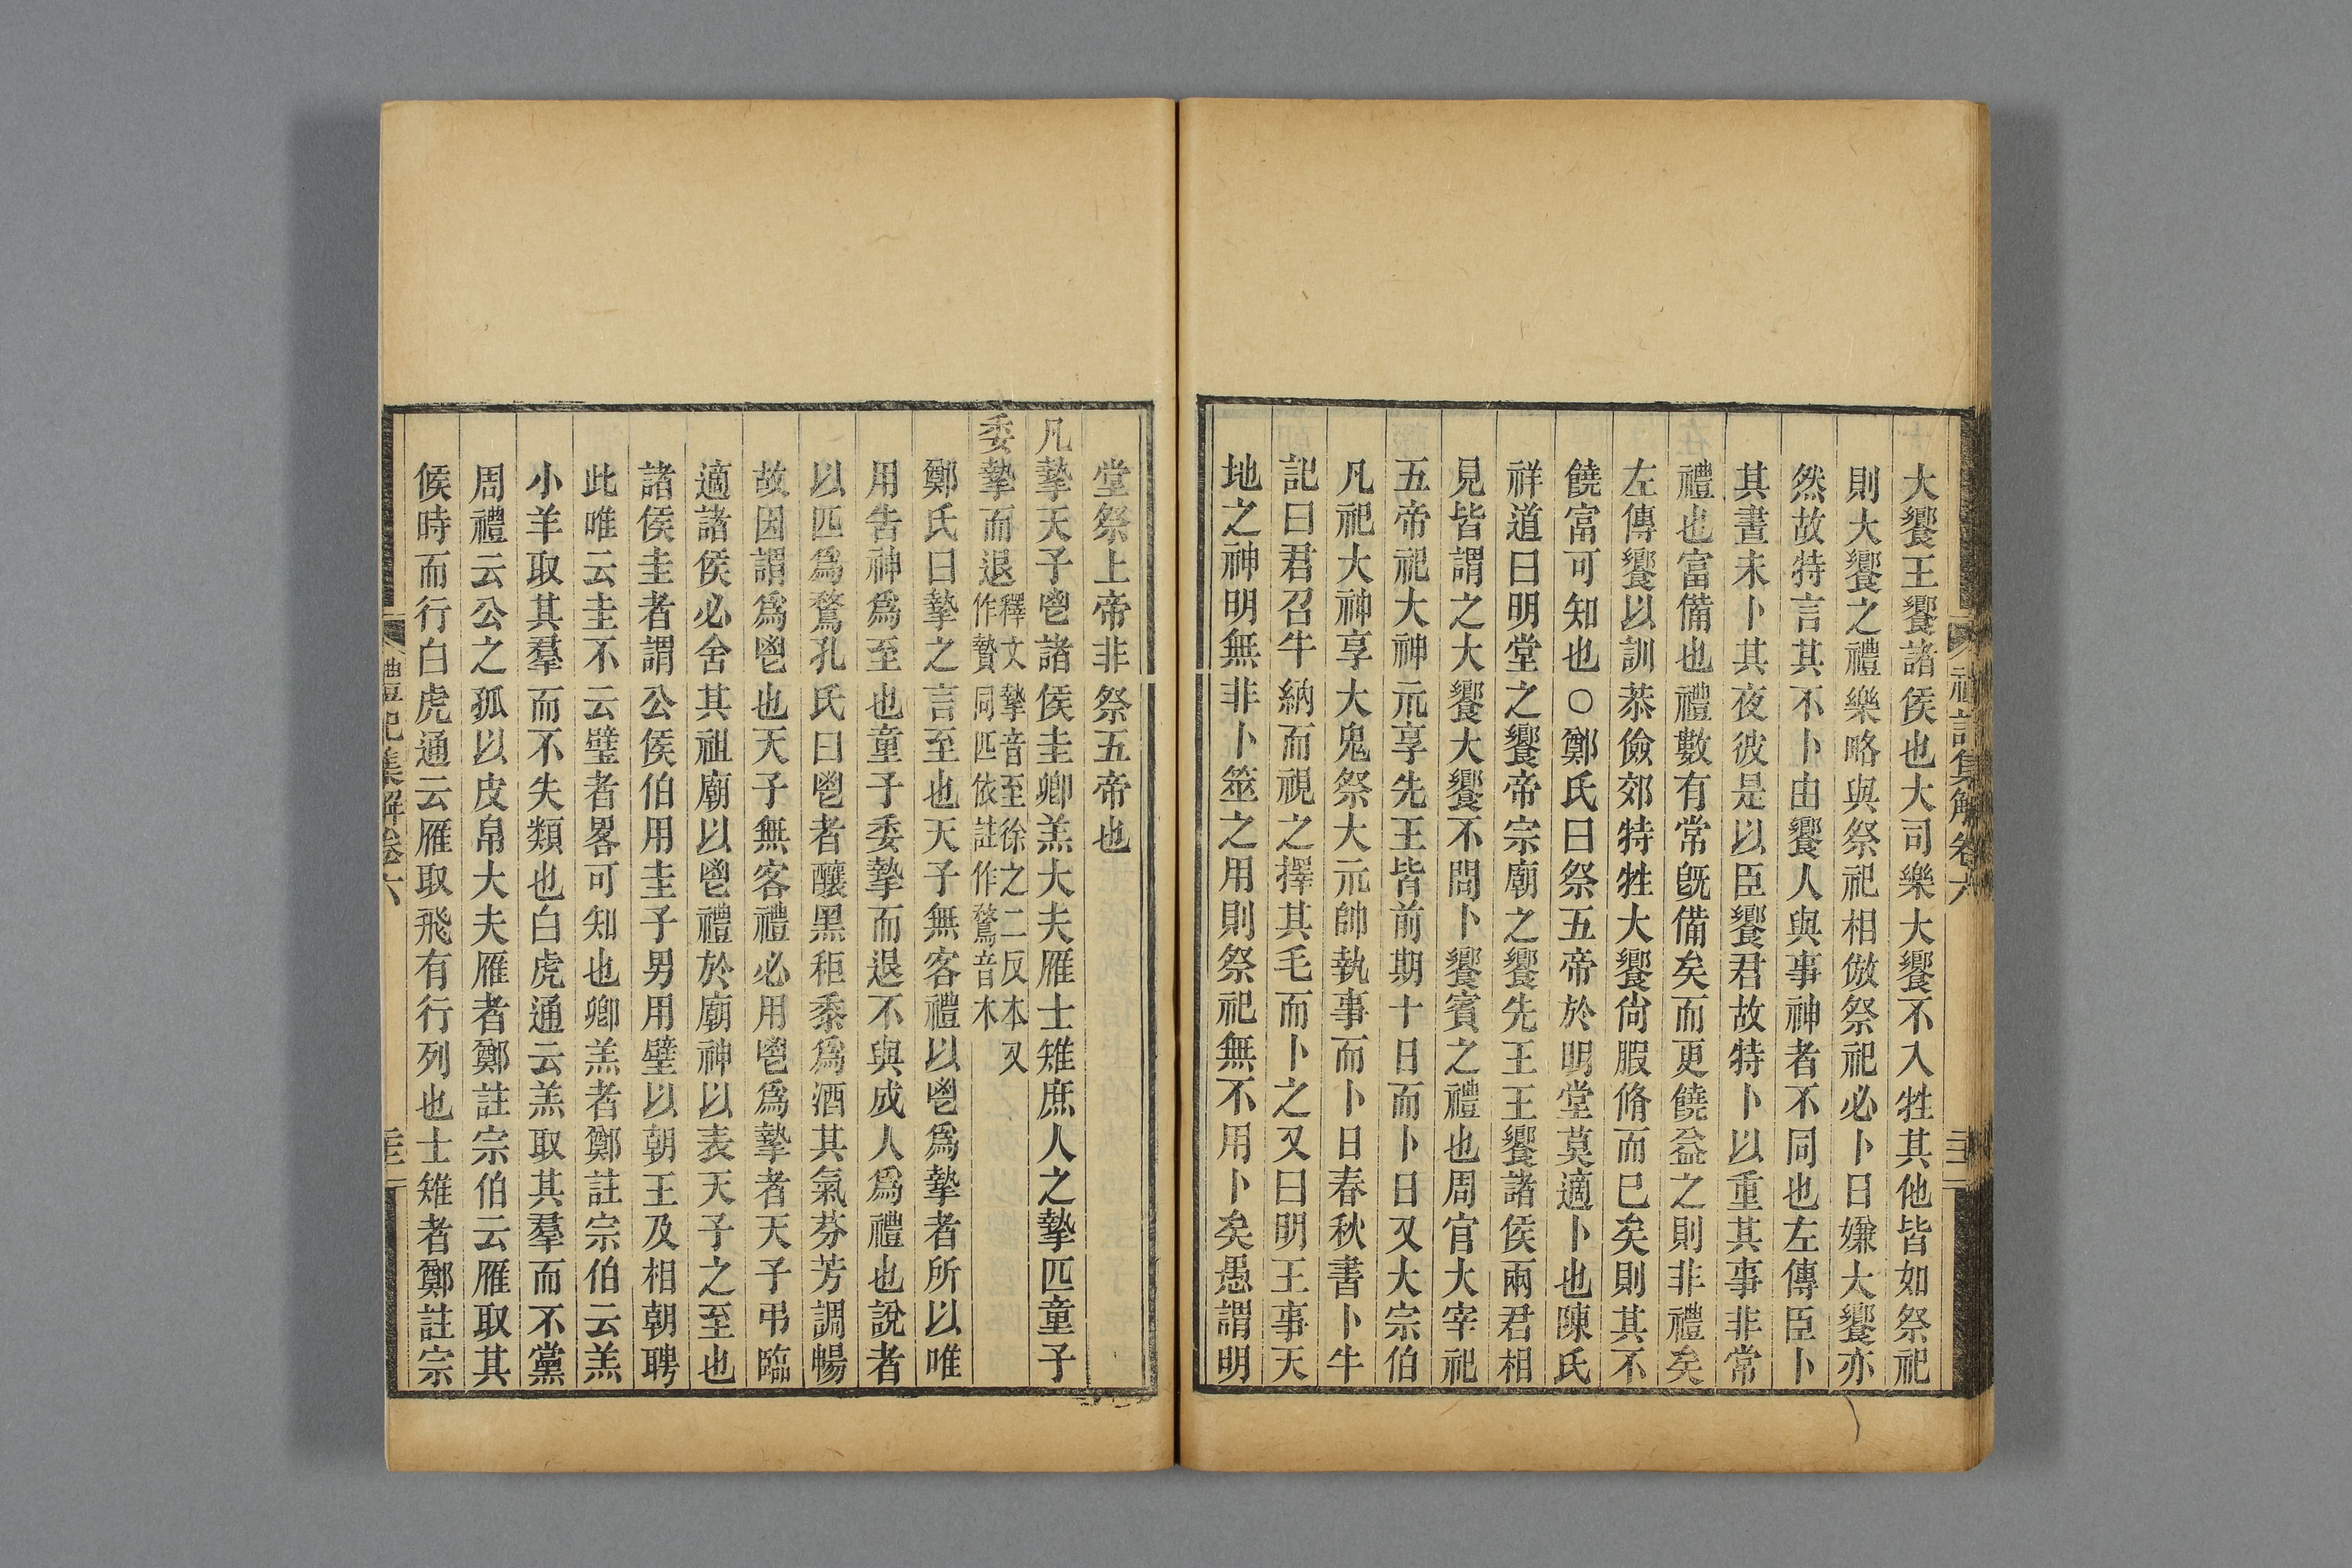 禮記集解卷六
大饗王饗諸侯也大司樂大饗不入牲其他皆如祭祀
則大饗之禮樂略與祭祀相倣祭祀必卜日嫌大饗亦
然故特言其不卜由饗人與事神者不同也左傳臣卜
其晝未卜其夜彼是以臣饗君故特卜以重其事非常
禮也富備也禮數有常旣備矣而更饒益之則非禮矣
左傳饗以訓恭儉郊特牲大饗尙腶脩而已矣則其不
饒富可知也○鄭氏曰祭五帝於明堂莫適卜也陳氏
祥道曰明堂之饗帝宗廟之饗先王王饗諸侯兩君相
見皆謂之大饗大饗不問卜饗賓之禮也周官大宰祀
五帝祀大神元享先王皆前期十日而卜日又大宗伯
凡祀大神享大鬼祭大元帥執事而卜日春秋書卜牛
記曰君召牛納而視之擇其毛而卜之又曰明王事天
地之神明無非卜筮之用則祭祀無不用卜矣愚謂明
堂祭上帝非祭五帝也
凡摯天子鬯諸侯圭卿羔大夫雁士雉庶人之摯匹童子
委摯而退釋文摯音至徐之二反本又作贄同匹依註作鶩音木
鄭氏曰摯之言至也天子無客禮以鬯爲摯者所以唯
用告神爲至也童子委摯而退不與成人爲禮也說者
以匹爲鶩孔氏曰鬯者釀黑秬黍爲酒其氣芬芳調暢
故因謂爲鬯也天子無客禮必用鬯爲摯者天子弔臨
適諸侯必舍其祖廟以鬯禮於廟神以表天子之至也
諸侯圭者謂公侯伯用圭子男用璧以朝王及相朝聘
此唯云圭不云璧者畧可知也卿羔者鄭註宗伯云羔
小羊取其羣而不失類也白虎通云羔取其羣而不黨
周禮云公之孤以皮帛大夫雁者鄭註宗伯云雁取其
候時而行白虎通云雁取飛有行列也士雉者鄭註宗
禮記集解卷六